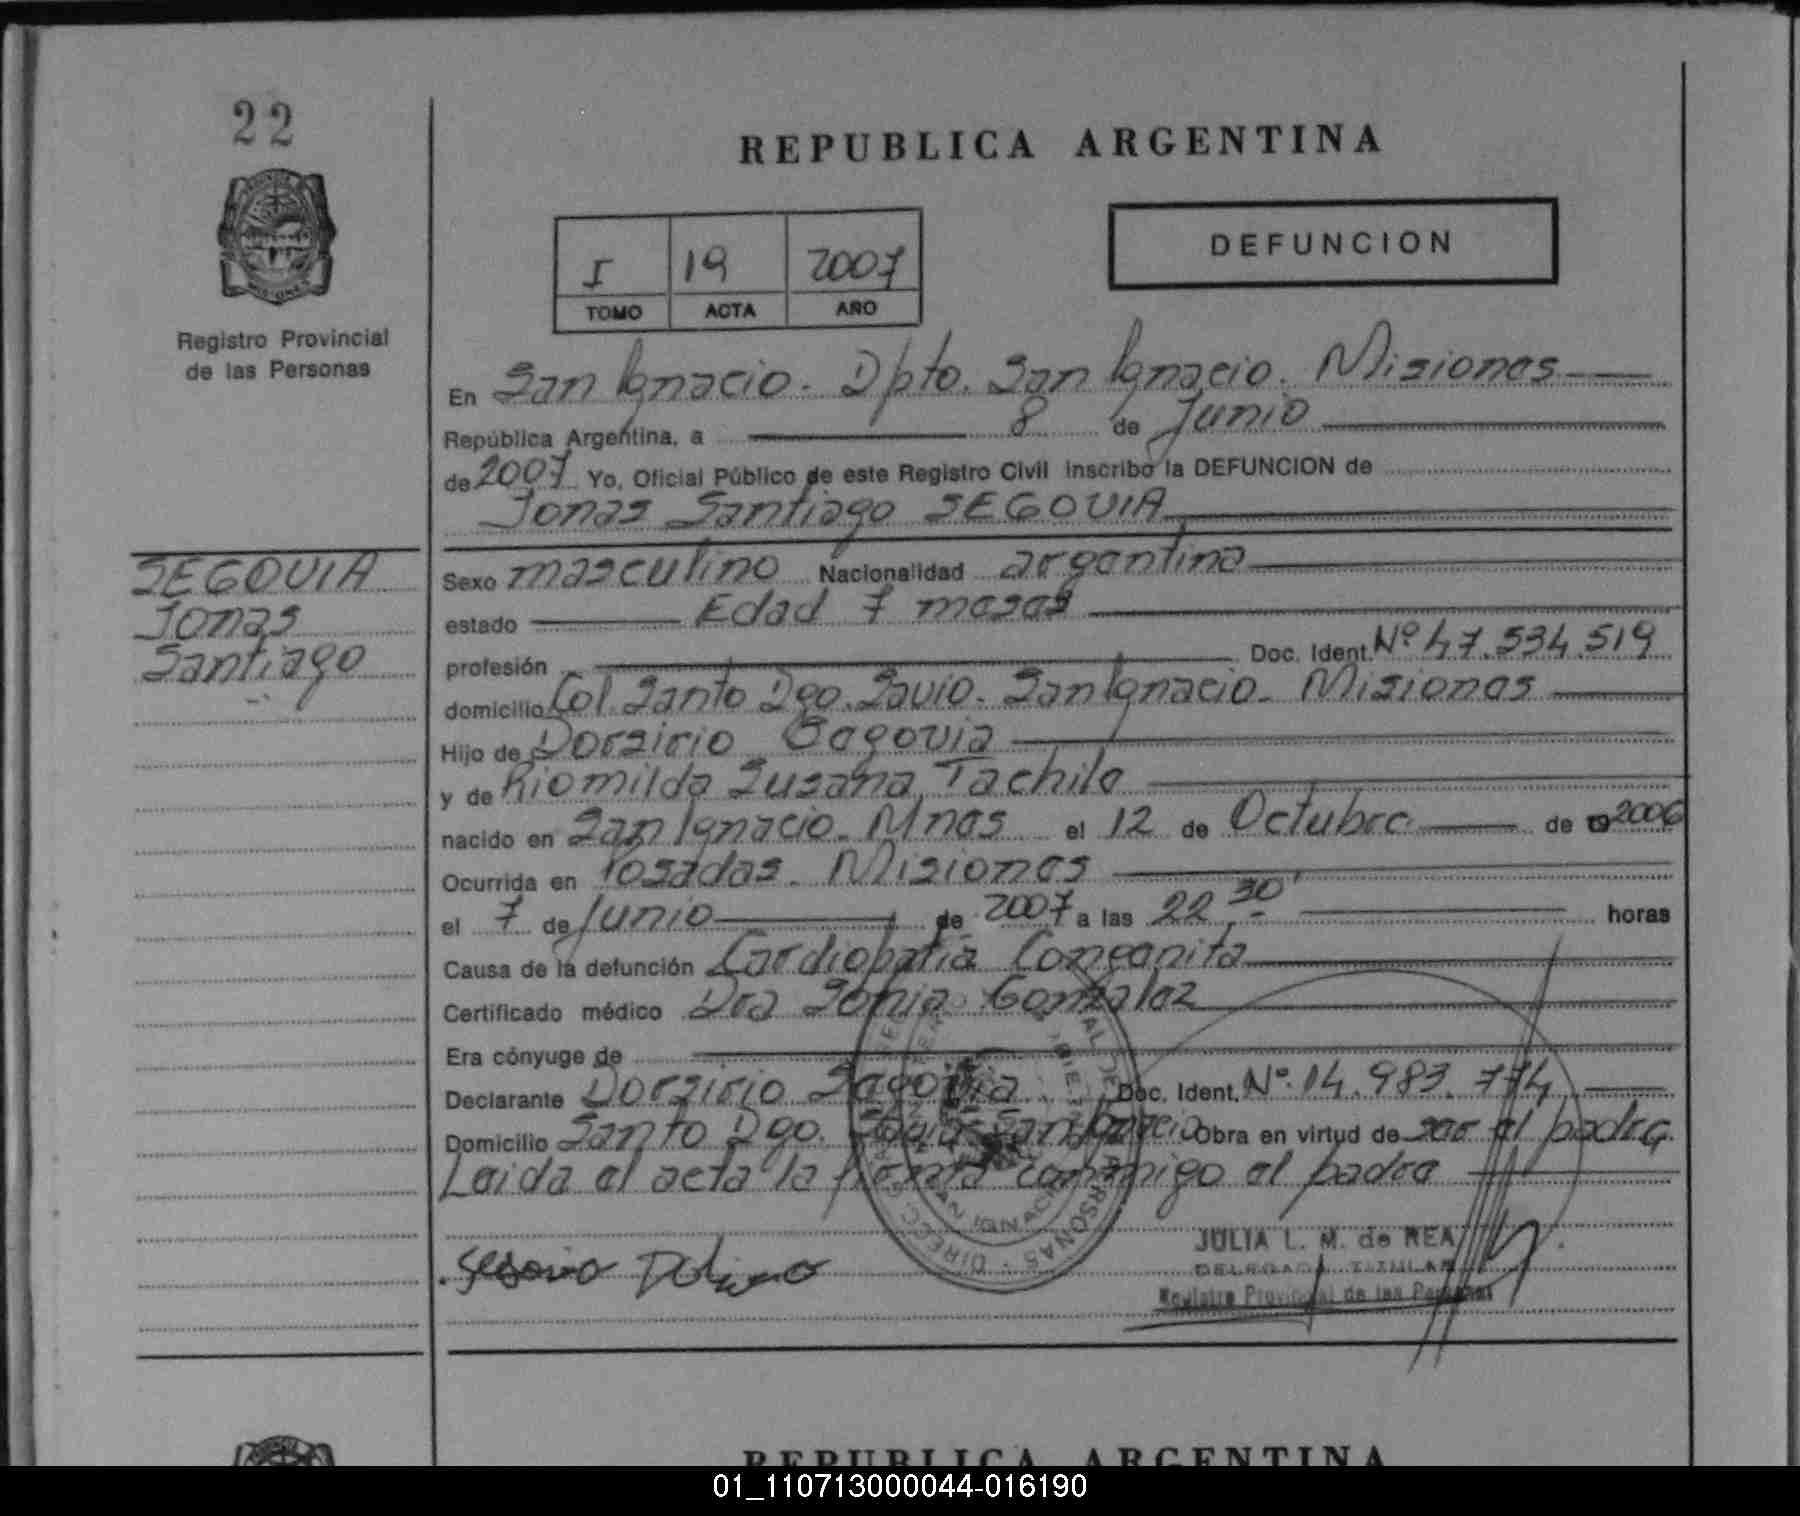 22
REPUBLICA ARGENTINA
I 19 2007
TOMO ACTA AÑO
DEFUNCION
Registro Provincial
de las Personas
En San Ignacio. Dpto. San Ignacio. Misiones
República Argentina, a 8 de Junio
de 2007 Yo, Oficial Público de este Registro Civil inscribo la DEFUNCION de
Jonas Santiago SEGOVIA
SEGOVIA
Jonas
Santiago
Sexo masculino Nacionalidad argentina
estado Edad 7 meses
profesión Doc. Ident. Nº 47.534.519
domicilio Col. Santo Dgo. Savio. San Ignacio. Misiones
Hijo de Dorsirio Segovia
y de Riomilda Susana Tachile
nacido en San Ignacio. Mnes el 12 de Octubre de 2006
Ocurrida en Posadas. Misiones
el 7 de Junio de 2007 a las 22,30' horas
Causa de la defunción Cardiopatia Congenita
Certificado médico Dra Sonia Gonzalez
Era cónyuge de
Declarante Dorsirio Segovia Doc. Ident. Nº 14.983.774
Domicilio Santo Dgo. Savio San Ignacio Obra en virtud de ser el padre
Leida el acta la firma conmigo el padre
Segovia
JULIA L. M. de REA
DELEGADA TITULAR
Registro Provincial de las Personas
REPUBLICA ARGENTINA
01_110713000044-016190